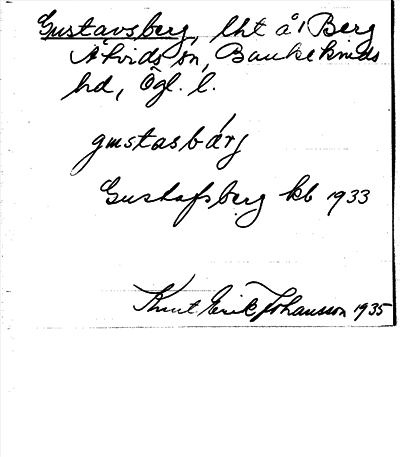 Gustavsberg, lht å 1 Berg
Åtvids sn, Bankekinds
hd, Ögl. l.
gustasbárj
Gustafsberg kb 1933
Knut Erik Johansson 1935